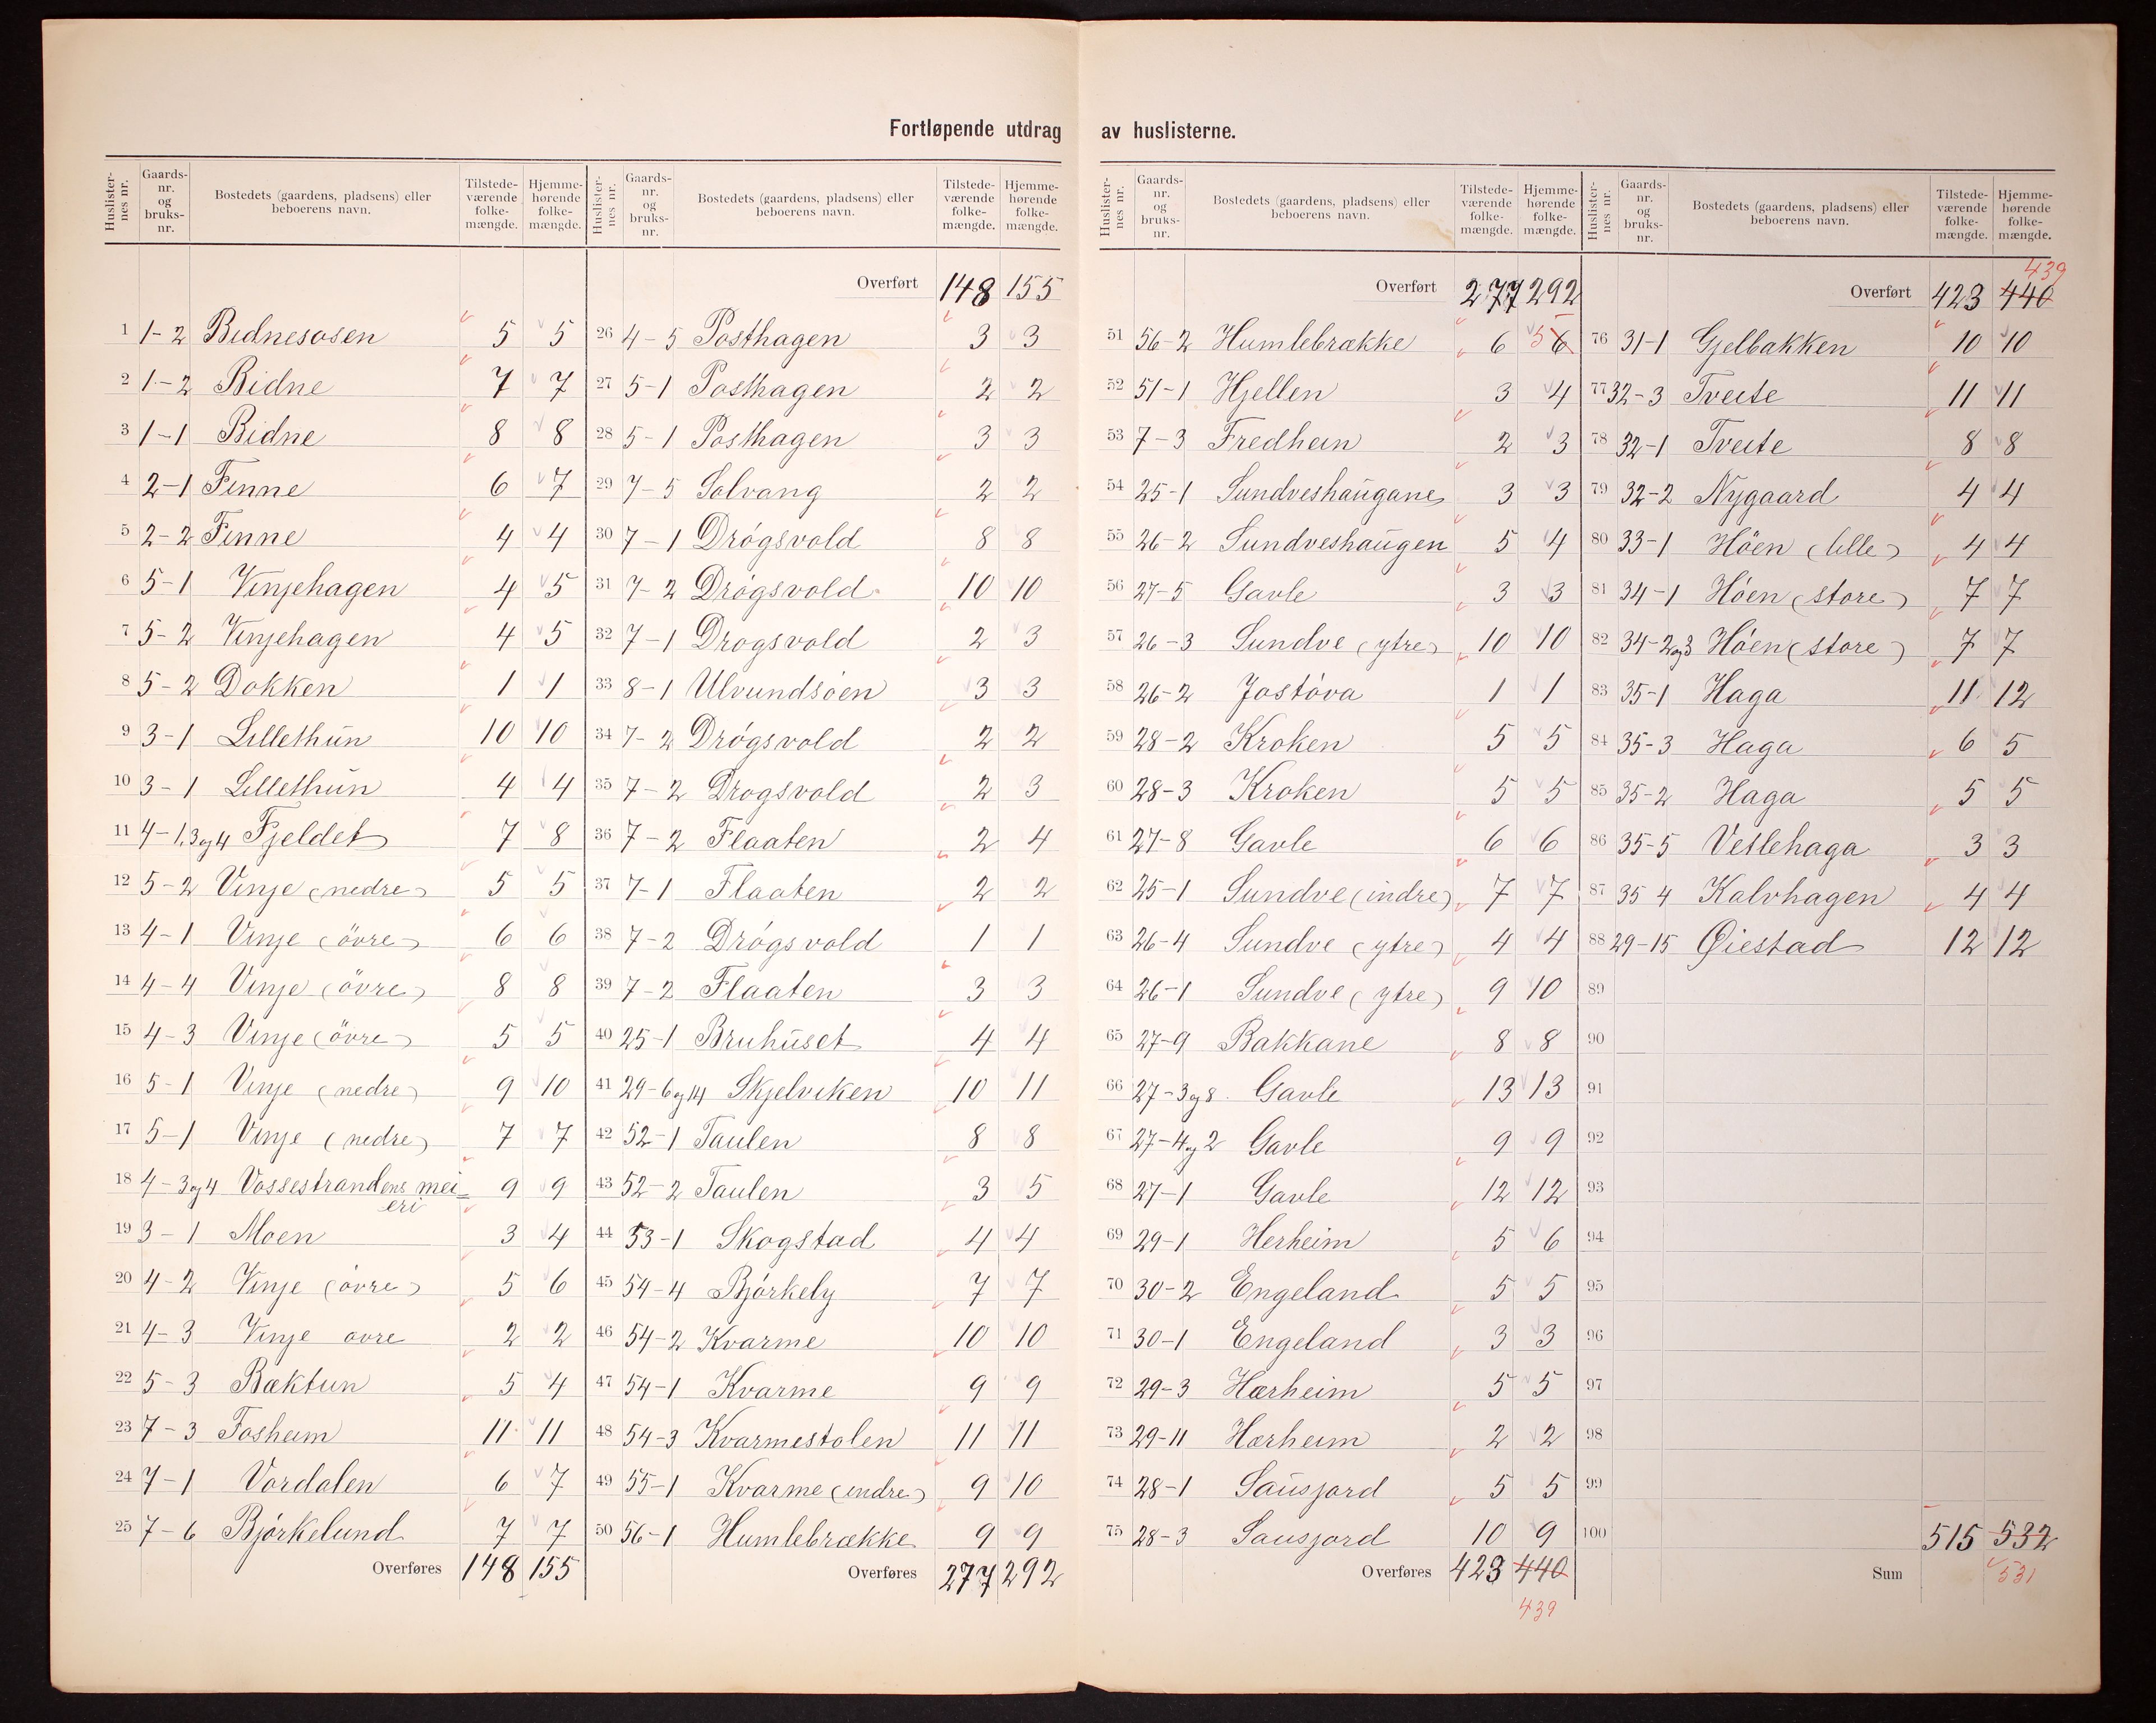 Fortløpende utdrag av huslisterne.
Huslisternes nr. Gaards-nr. og bruks-nr. Bostedets (gaardens, pladsens) eller beboerens navn. Tilstede-værende folke-mængde. Hjemme-hørende folke-mængde.
1 1-2 Bidnesosen 5 5
2 1-2 Bidne 7 7
3 1-1 Bidne 8 8
4 2-1 Finne 6 7
5 2-2 Finne 4 4
6 5-1 Vinjehagen 4 5
7 5-2 Vinjehagen 4 5
8 5-2 Dokken 1 1
9 3-1 Lillethun 10 10
10 3-1 Lillethun 4 4
11 4-1,3og4 Fjeldet 7 8
12 5-2 Vinje (nedre) 5 5
13 4-1 Vinje (övre) 6 6
14 4-4 Vinje (övre) 8 8
15 4-3 Vinje (övre) 5 5
16 5-1 Vinje (nedre) 9 10
17 5-1 Vinje (nedre) 7 7
18 4-3og4 Vossestrandens mei=
eri 9 9
19 3-1 Moen 3 4
20 4-2 Vinje (övre) 5 6
21 4-3 Vinje övre 2 2
22 5-3 Bæktun 5 4
23 7-3 Fosheim 11 11
24 7-1 Vordalen 6 7
25 7-6 Björkelund 7 7
Overføres 148 155
Huslisternes nr. Gaards-nr. og bruks-nr. Bostedets (gaardens, pladsens) eller beboerens navn. Tilstede-værende folke-mængde. Hjemme-hørende folke-mængde.
Overført 148 155
26 4-5 Posthagen 3 3
27 5-1 Posthagen 2 2
28 5-1 Posthagen 3 3
29 7-5 Solvang 2 2
30 7-1 Drögsvold 8 8
31 7-2 Drögsvold 10 10
32 7-1 Drogsvold 2 3
33 8-1 Ulvundsöen 3 3
34 7-2 Drögsvold 2 2
35 7-2 Drogsvold 2 3
36 7-2 Flaaten 2 4
37 7-1 Flaaten 2 2
38 7-2 Drögsvold 1 1
39 7-2 Flaaten 3 3
40 25-1 Bruhuset 4 4
41 29-6og14 Skjelviken 10 11
42 52-1 Taulen 8 8
43 52-2 Taulen 3 5
44 53-1 Skogstad 4 4
45 54-4 Björkely 7 7
46 54-2 Kvarme 10 10
47 54-1 Kvarme 9 9
48 54-3 Kvarmestolen 11 11
49 55-1 Kvarme (indre) 9 10
50 56-1 Humlebrække 9 9
Overføres 277 292
Huslisternes nr. Gaards-nr. og bruks-nr. Bostedets (gaardens, pladsens) eller beboerens navn. Tilstede-værende folke-mængde. Hjemme-hørende folke-mængde.
Overført 277 292
51 56-2 Humlebrække 6 5 6
52 51-1 Hjellen 3 4
53 7-3 Fredheim 2 3
54 25-1 Sundveshaugane 3 3
55 26-2 Sundveshaugen 5 4
56 27-5 Gavle 3 3
57 26-3 Sundve (ytre) 10 10
58 26-2 Jostöva 1 1
59 28-2 Kroken 5 5
60 28-3 Kroken 5 5
61 27-8 Gavle 6 6
62 25-1 Sundve (indre) 7 7
63 26-4 Sundve (ytre) 4 4
64 26-1 Sundve (ytre) 9 10
65 27-9 Bakkane 8 8
66 27-3og8 Gavle 13 13
67 27-4og2 Gavle 9 9
68 27-1 Gavle 12 12
69 29-1 Herheim 5 6
70 30-2 Engeland 5 5
71 30-1 Engeland 3 3
72 29-3 Hærheim 5 5
73 29-11 Hærheim 2 2
74 28-1 Sausjord 5 5
75 28-3 Sausjord 10 9
Overføres 423 440
439
Huslisternes nr. Gaards-nr. og bruks-nr. Bostedets (gaardens, pladsens) eller beboerens navn. Tilstede-værende folke-mængde. Hjemme-hørende folke-mængde.
439
Overført 423 440
76 31-1 Gjelbakken 10 10
77 32-3 Tveite 11 11
78 32-1 Tveite 8 8
79 32-2 Nygaard 4 4
80 33-1 Höen (lille) 4 4
81 34-1 Höen (store) 7 7
82 34-2og3 Höen (store) 7 7
83 35-1 Haga 11 12
84 35-3 Haga 6 5
85 35-2 Haga 5 5
86 35-5 Vetlehaga 3 3
87 35 4 Kalvhagen 4 4
88 29-15 Øiestad 12 12
89
90
91
92
93
94
95
96
97
98
99
100 515 532
Sum 531